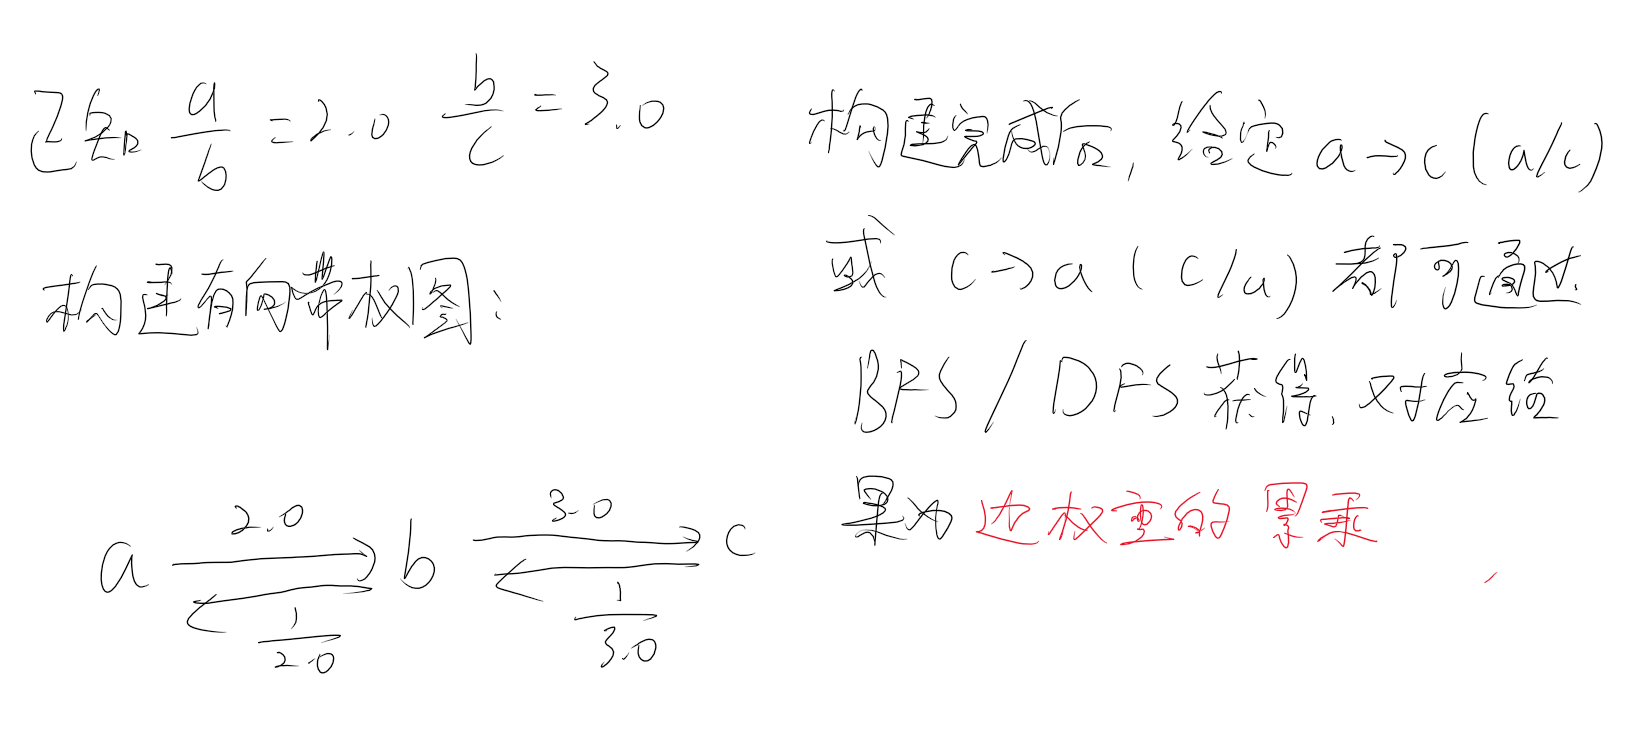 已知 a/b = 2.0 b/c = 3.0
构建有向带权图：
a 2.0 b 3.0 c
1/2.0 1/3.0
构建完成后, 给定 a→c (a/c)
或 c→a (c/a) 都可通过
BFS / DFS 获得, 对应结
果为 边权重的累乘